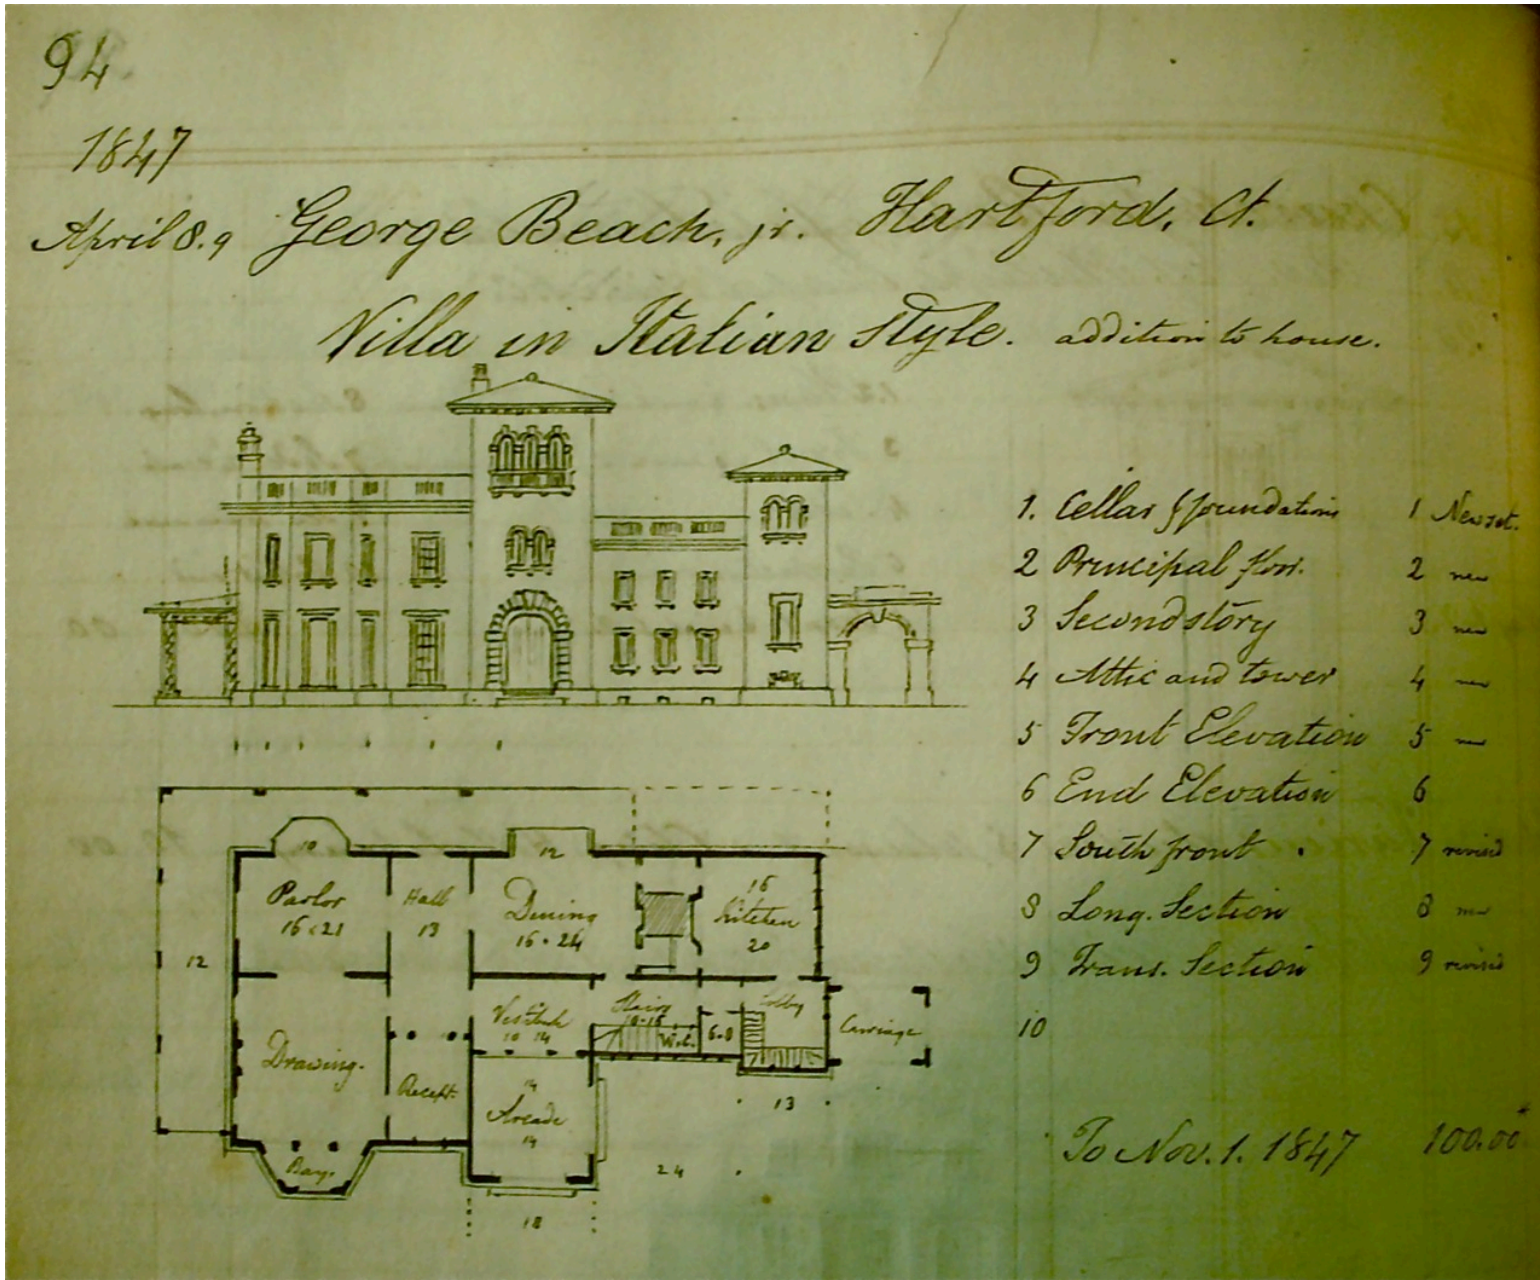 94
1847
April 8.9 George Beach, jr. Hartford, Ct.
Villa in Italian Style. addition to house.
1. Cellar & foundations 1 New set.
2 Principal floor. 2 new
3 Second story 3 new
4 Attic and tower 4 new
5 Front Elevation 5 new
6 End Elevation 6
7 South front 7 revised
8 Long. Section 8 new
9 Trans. Section 9 revised
10
To Nov. 1. 1847 100.00
10
12
Parlor
16.21
Hall
13
Dining
16.24
16
Kitchen
20
12
Vestibule
10 14
Stairs
10.16
W.C.
6.8
Lobby
Carriage
Drawing.
Recept.
14
Arcade
14
13
Bay.
24
18